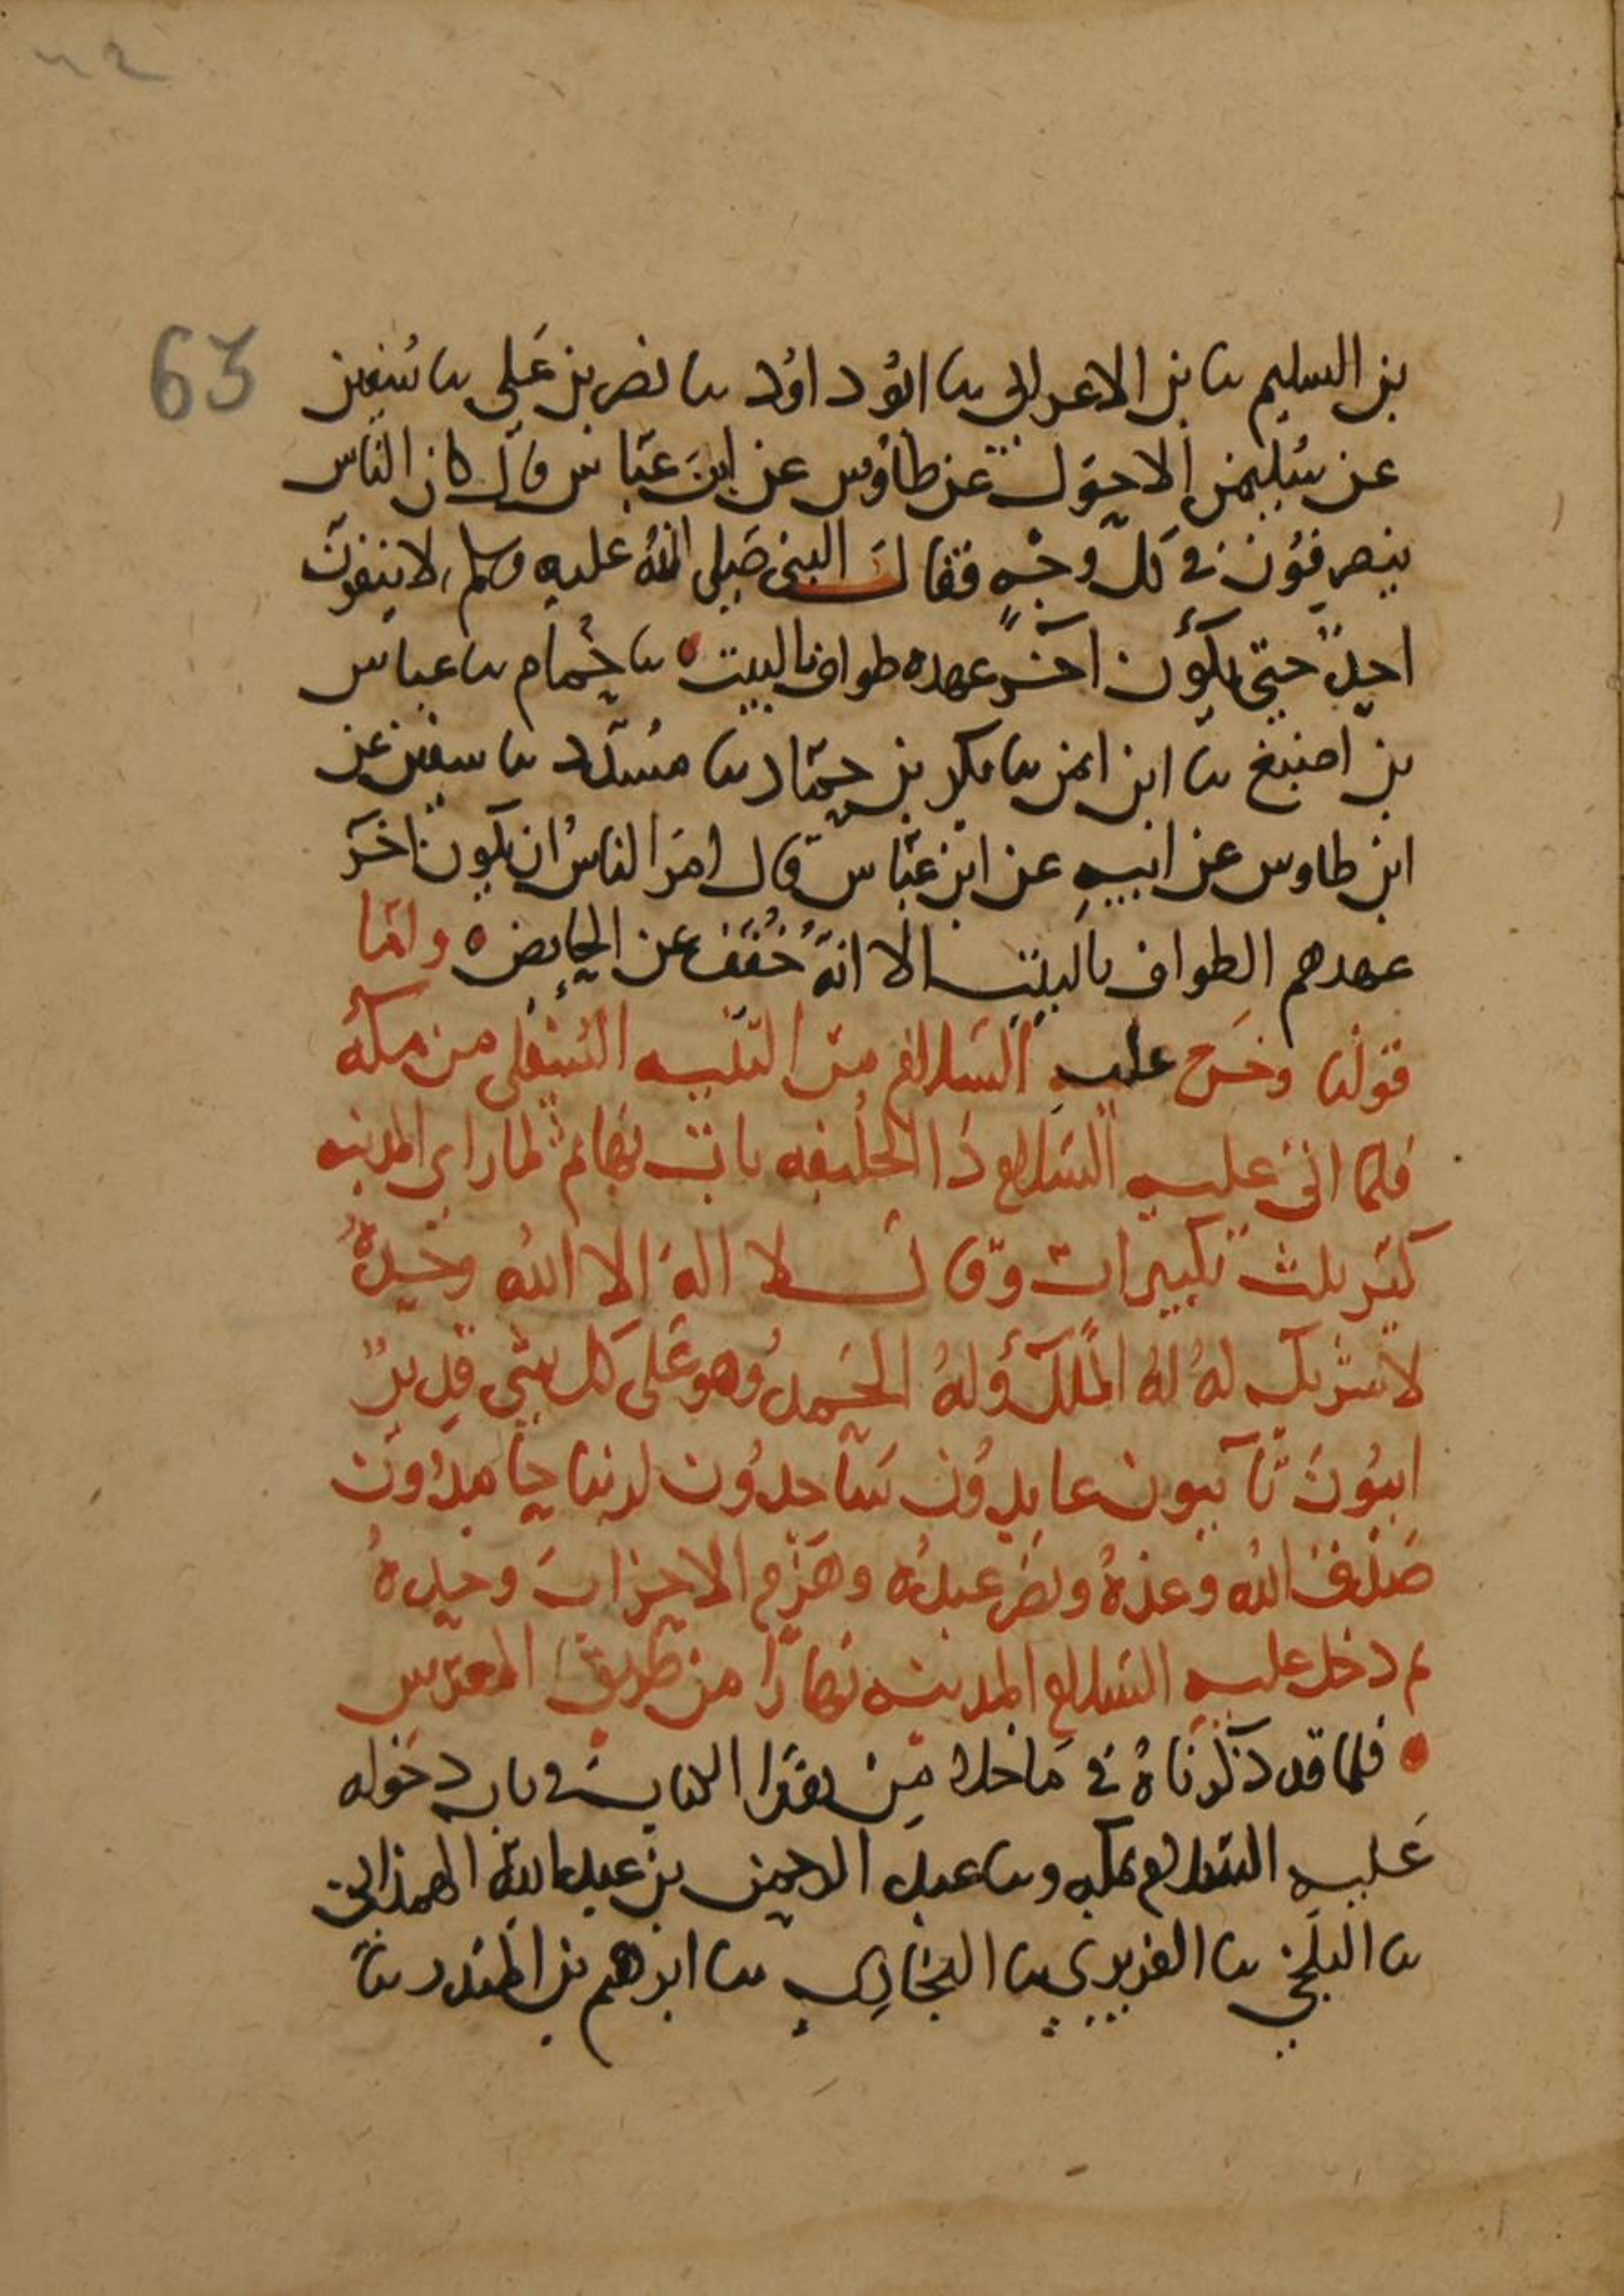 63
بن السليم ثنا بن الاعرابي ثنا ابو داوٗد ثنا نصر بن علي ثنا سفين
عن سليمن الاحول عن طاوس عن ابن عباس قال كان الناس
ينصرفون في كل وجه فقال النبي صلى الله عليه وسلم لا ينفرن
احد حتى يكون آخر عهده طواف بالبيت ثنا حمام ثنا عباس
بن اصبغ ثنا ابن ايمن ثنا بكر بن حماد ثنا مسدد ثنا سفين عن
ابن طاوس عن ابيه عن ابن عباس قال امر الناس ان يكون اخر
عهدهم الطواف بالبيت الا انه خفف عن الحايض ه واما
قولنا وخرج عليه السلام من الثنية السفلى من مكة
فلما اتى عليه السلام ذا الحليفه بات بها ثم لما راى المدينه
كبر ثلث تكبيرات وقال لا اله الا الله وحده
لا شريك له له الملك وله الحمد وهو على كل شي قدير
ايبون تآيبون عابدون ساجدون لربنا حامدون
صدق الله وعده ونصر عبده وهزم الاحزاب وحده
ثم دخل عليه السلام المدينه نهارا من طريق المعرس
فلما قد ذكرناه في ما خلا من هذا الكتاب في باب دخوله
عليه السلام مكه وثنا عبد الرحمن بن عبد الله الهمداني
ثنا البلخي ثنا الفربري ثنا البخاري ثنا ابرهيم بن المنذر ثنا